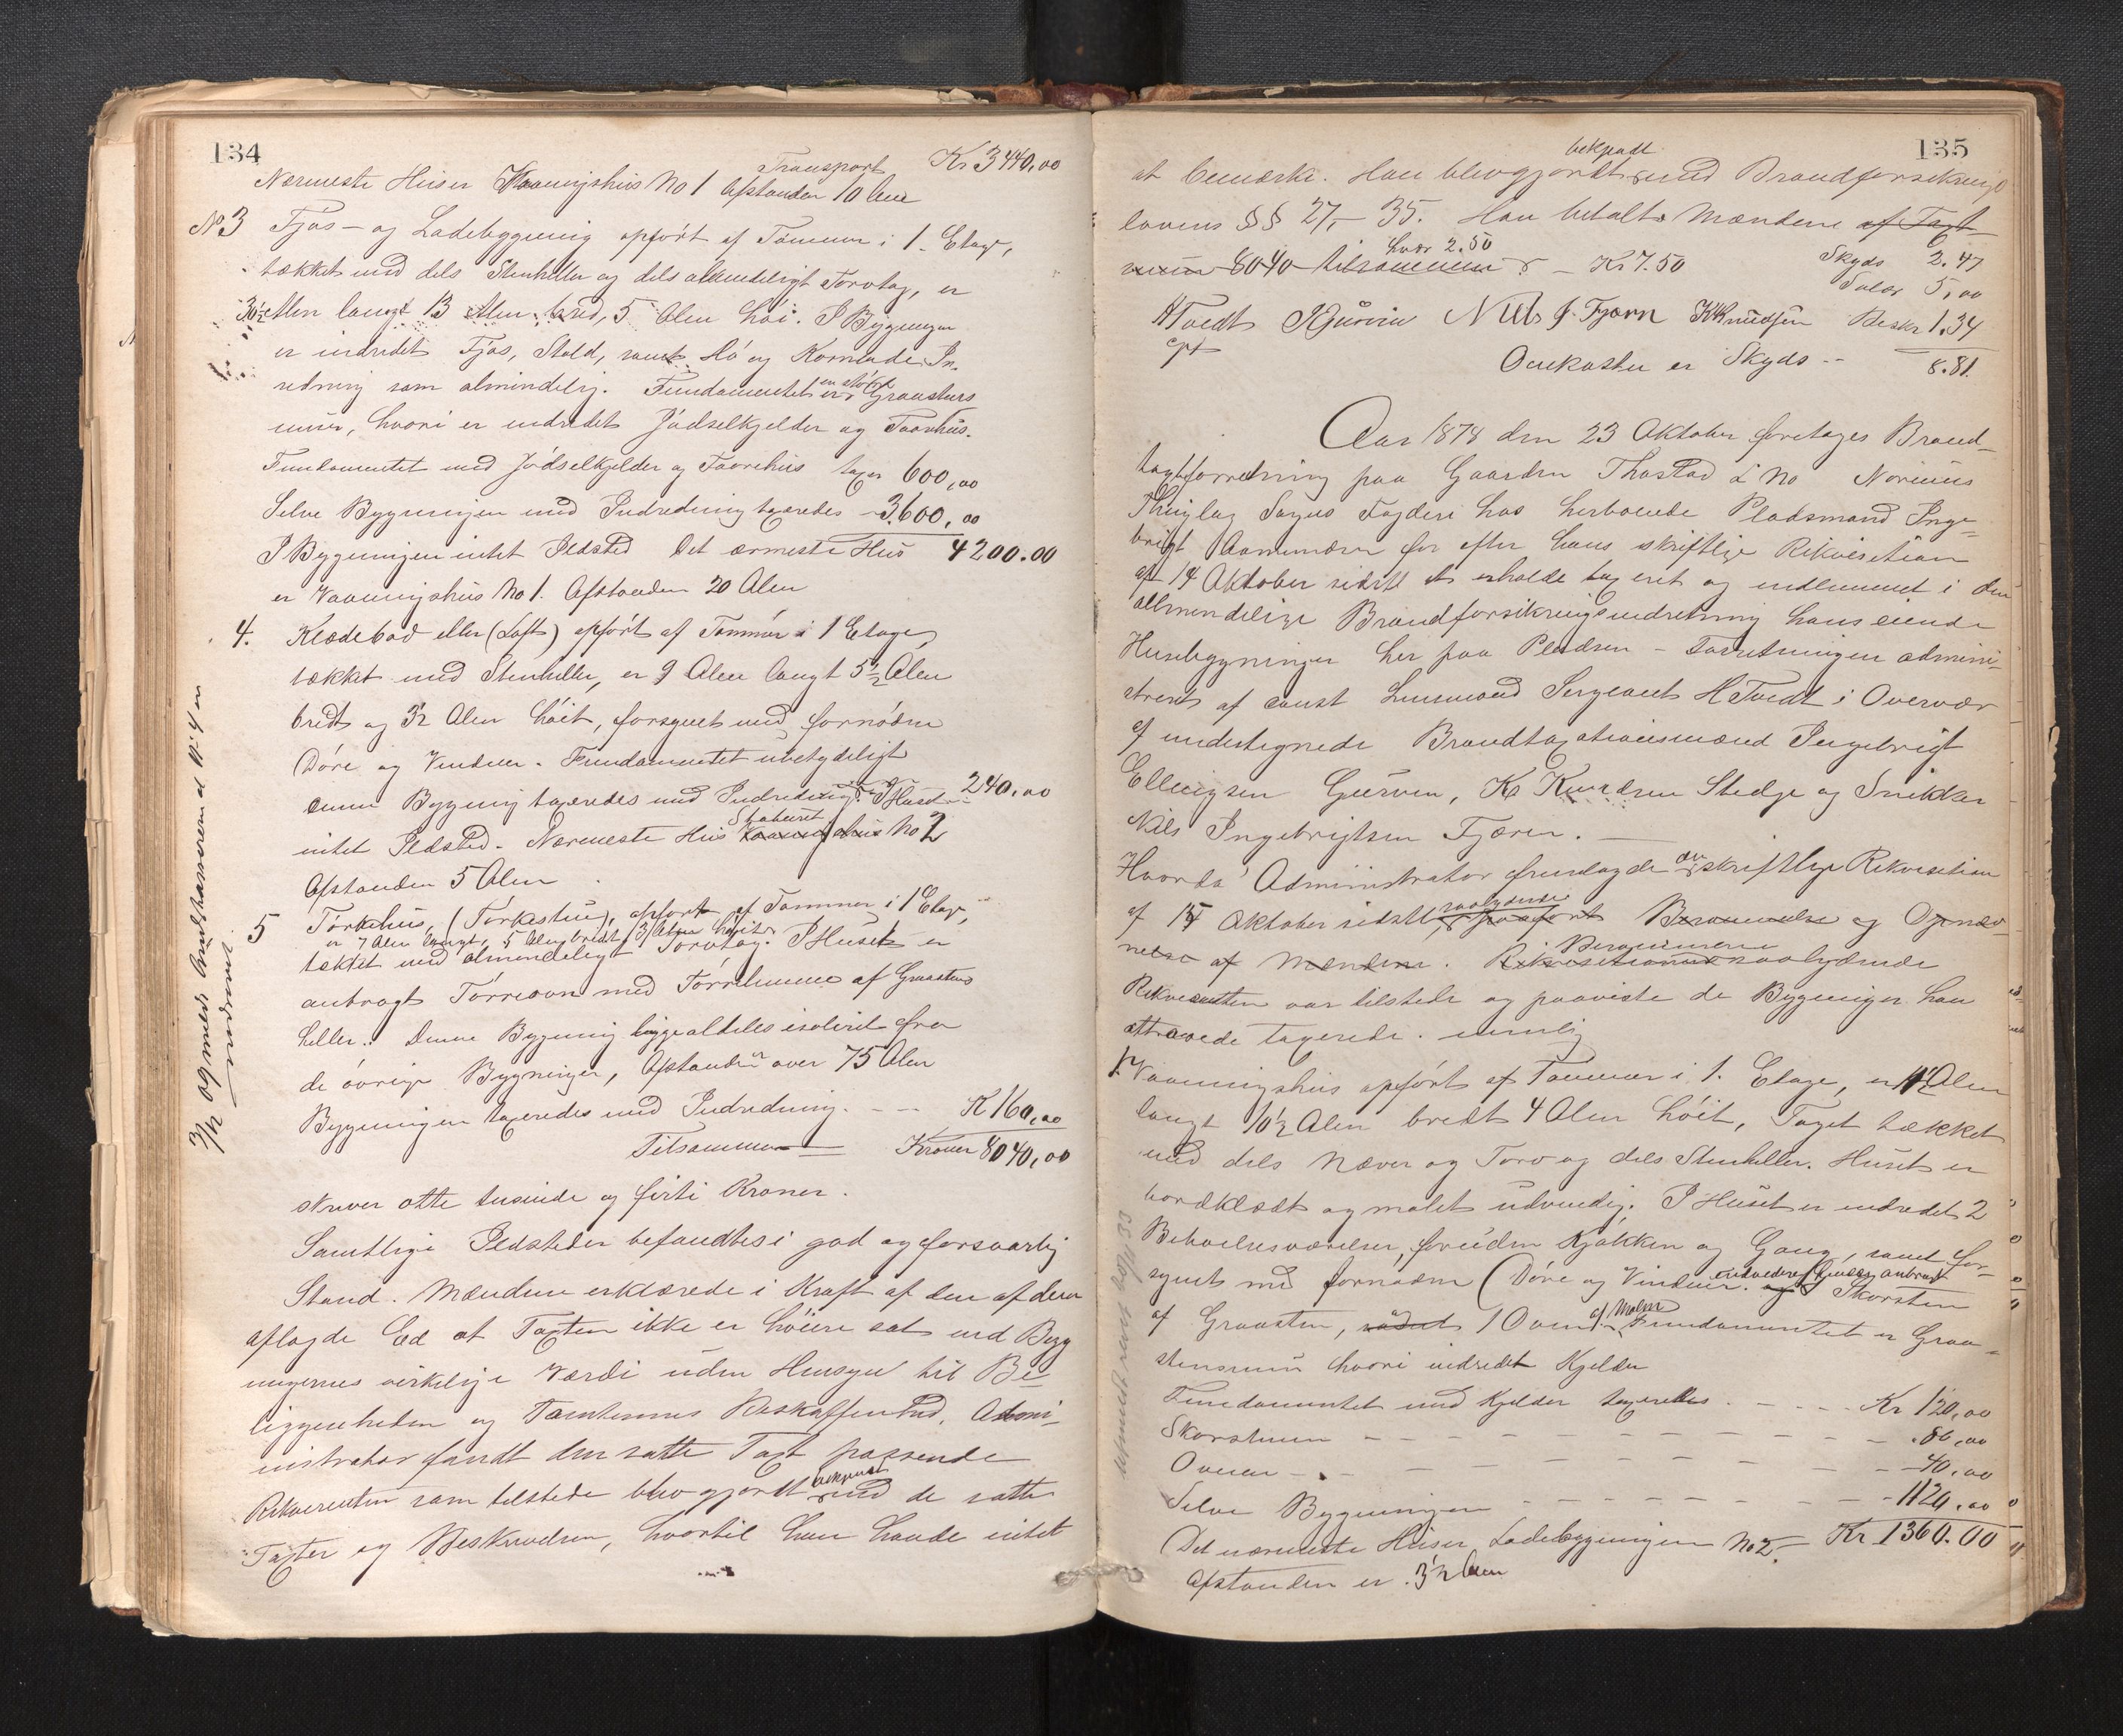 134
Transport Kr 3440,00
Nærmeste Huser Vaaningshus No 1 Afstanden 10 Alen
No 3 Fjøs- og Ladebygning opført af Tømmer i 1 Etage,
tækket med dels Stenheller og dels almindeligt Torvtag, er
30½ Alen langt 13 Alen bred, 5 Alen høi. I Bygningen
er indredet Fjøs, Stald, samt Hø og Kornlade. In-
redning som almindelig. Fundamentet er en større Graastens
muur, hvori er indredet Jødselkjelder og Faarehus.
Fundamentet med Jødselkjelder og Faarehus taxer 600,00
Selve Bygningen med Indredning taxeredes - 3600,00
I Bygningen intet Ildsted Det nærmeste Hus 4200.00
er Vaaningshus No 1. Afstanden 20 Alen
4. Klædebod eller (Loft) opført af Tømmer i 1 Etage,
tækket med Stenheller, er 9 Alen langt 5½ Alen
bredt og 3½ Alen høit, forsynet med fornødne
Døre og Vinduer. Fundamentet ubetydeligt
Denne Bygning taxeredes med Indredning. I Huset 240,00
intet Ildsted. Nærmeste Hus Vaaningshus Stabburet No 2
Afstanden 5 Alen
5 Tørkehus, (Tørkestue), opført af Tømmer i 1 Etage,
er 7 Alen langt, 5 Alen bredt, 3 Alen høit
tæktet med almindeligt Torvtag. I Huset er
anbragt Tørreovn med Tørrelemme af Graastens
heller. Denne Bygning ligger aldeles isoleret fra
de øvrige Bygninger, Afstanden over 75 Alen
Bygningen taxeredes med Indredning. - - K 160,00
Tilsammen Kroner 8040,00
skriver otte tusinde og firti Kroner.
Samtlige Ildsteder befandtes i god og forsvarlig
Stand. Mændene erklærede i Kraft af den af dem
aflagde Ed at Taxten ikke er høiere sat end Byg
ningernes virkelige Værdi uden Hensyn til Be-
liggenheden og Tomternes Beskaffenhed. Admi-
nistrator fandt den satte Taxt passende
Rekvirenten som tilstede blev gjort bekjendt med de satte
Taxter og Beskrivelsen, hvortil han havde intet
135
at bemærke. Han blev gjordt bekjendt med Brandforsikrings
lovens §§ 27, - 35. Han betalte Mændene af Taxt
8040 tilsammen hver 2.50 - Kr 7.50 Skyds 2.47
Salær 5,00
HTvedt IGurvin Nils I. Fjærn KKnudsen Beskr 1,34
cst
Omkoster er Skyds -- 8.81.
Aar 1878 den 23 Oktober foretages Brand-
taxtforretning paa Gaarden Thostad L No Norums
Thinglag Sogns Fogderi hos herboende Pladsmand Inge-
brigt for efter hans skriftlige Rekvisition
af 14 Oktober sidstl at erholde taxeret og indlemmet i den
allmindelige Brandforsikringsindretning hans eiende
Husebygninger her paa Pladsen - Forretningen admini-
streret af const Lensmand Sergeant HTvedt i Overvær
af undertegnede Brandtaxationsmænd Ingebrigt
Ellingsen Gurvin, K Knudsen Stedje og Snikker
Nils Ingebrigtsen Fjæren.
Hvorda Administrator fremlagde den skriftlige Rekvisition
af 14 Oktober sidstl, saalydende paaført Berammelse og Opnæv-
nelse af Mændene. Rekvisitionen saalydende
Rekvirenten var tilstede og paaviste de Bygninger han
attraaede taxerede. nemlig
1. Vaaningshus opført af Tømmer i 1. Etage, er 11½ Alen
langt 10½ Alen bredt 4 Alen høit, Taget tækket
med dels Næver og Torv og dels Stenheller. Huset er
bordklædt og malet udvendig. I Huset er indredet 2
Beboelsesværelser, foruden Kjøkken og Gang, samt for-
synet med fornødne Døre og Vinduer. Skorsten
af Graasten, 1 Oven af Malm. Fundamentet er Graa-
stensmuur hvori indredet Kjelder
Fundamentet med Kjelder taxeredes. - - - - Kr 120,00
Skorstenen - - - - - 80,00
Ovnen - - - - - 40,00
Selve Bygningen - - - - - 1120,00
Det nærmeste Huser Ladebygningen No 2. Kr 1360.00
Afstanden er 3½ Alen